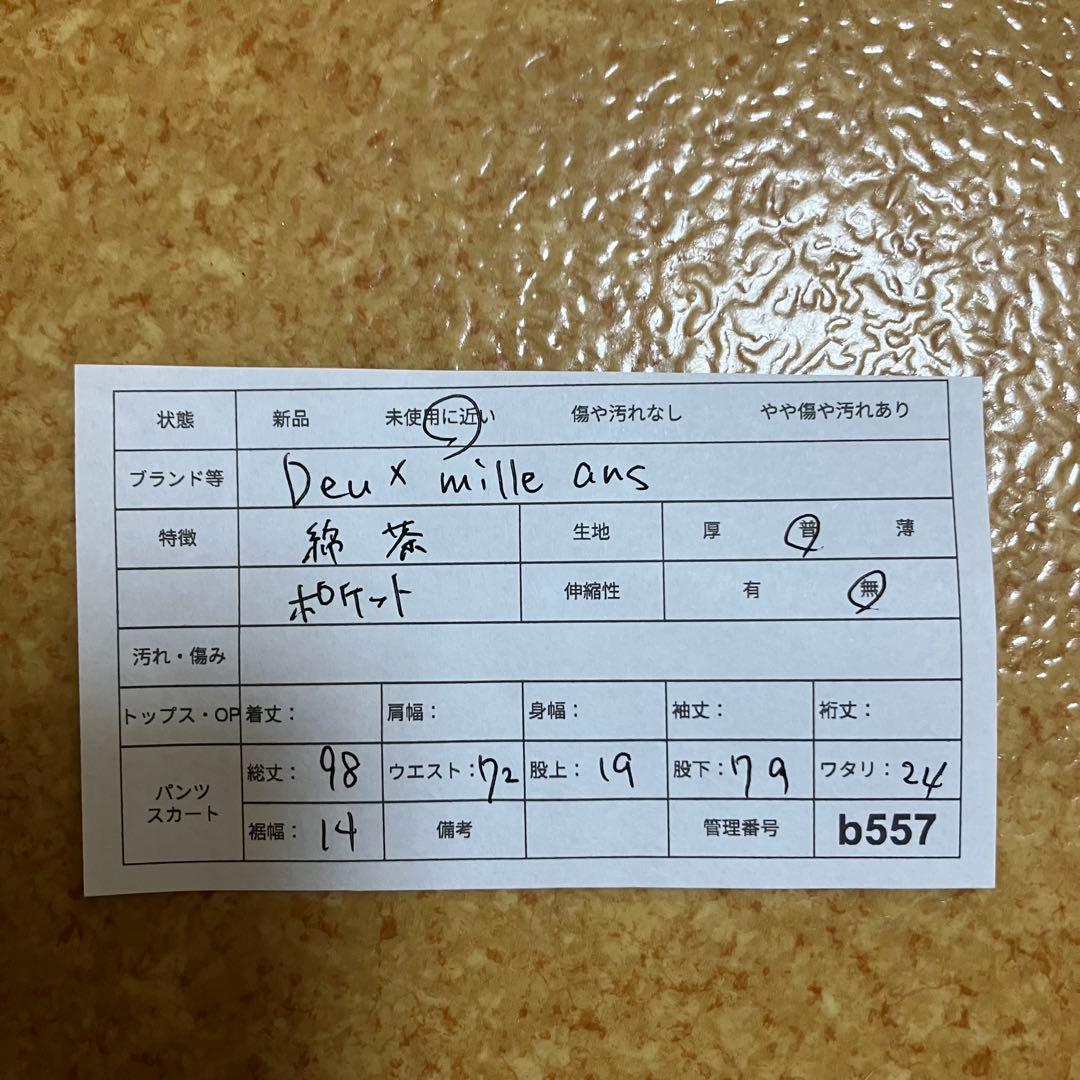 状態 新品 未使用に近い 傷や汚れなし やや傷や汚れあり
ブランド等 Deux mille ans
特徴 綿 茶 生地 厚 普 薄
ポケット 伸縮性 有 無
汚れ・傷み
トップス・OP 着丈： 肩幅： 身幅： 袖丈： 裄丈：
パンツ スカート 総丈： 98 ウエスト： 72 股上： 19 股下： 79 ワタリ： 24
裾幅： 14 備考 管理番号 b557